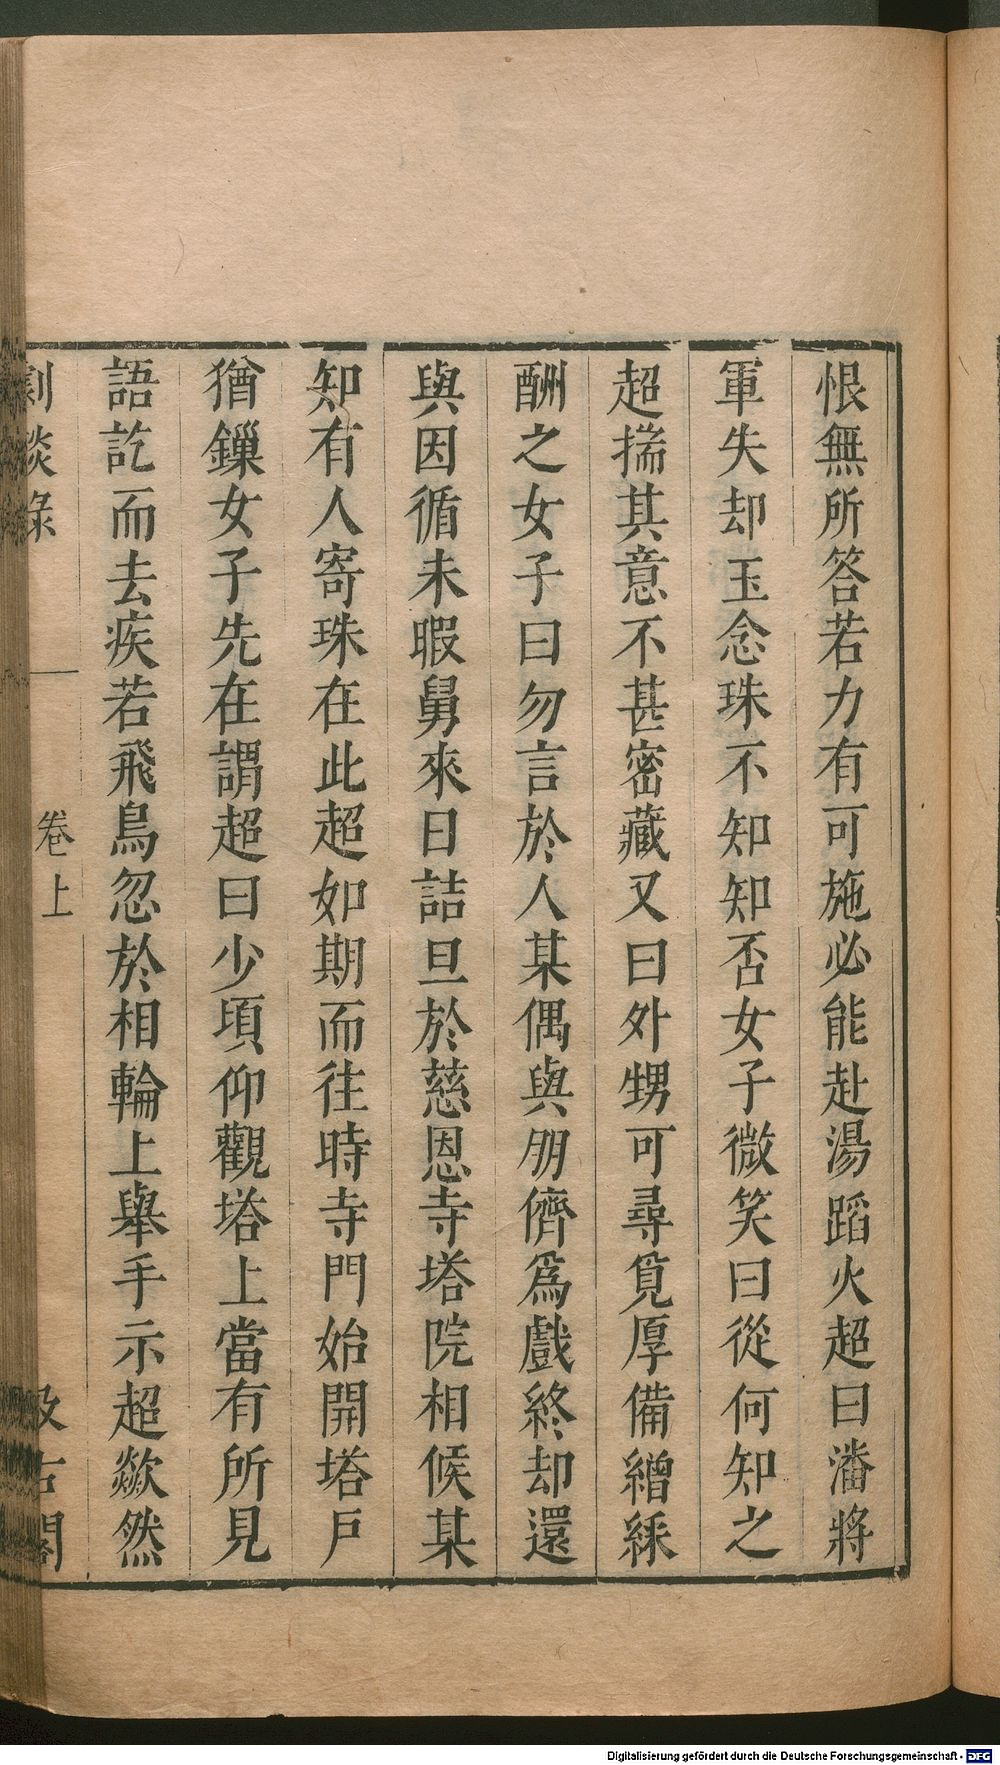 恨無所答若力有可施必能赴湯蹈火超曰潘將
軍失却玉念珠不知知否女子微笑曰從何知之
超揣其意不甚密藏又曰外甥可尋覓厚備繒綵
酬之女子曰勿言於人某偶與朋儕爲戲終却還
與因循未暇舅來日詰旦於慈恩寺塔院相候某
知有人寄珠在此超如期而往時寺門始開塔戶
猶鏁女子先在謂超曰少頃仰觀塔上當有所見
語訖而去疾若飛鳥忽於相輪上舉手示超歘然
劇談錄 卷上 汲古閣
Digitalisierung gefördert durch die Deutsche Forschungsgemeinschaft - DFG